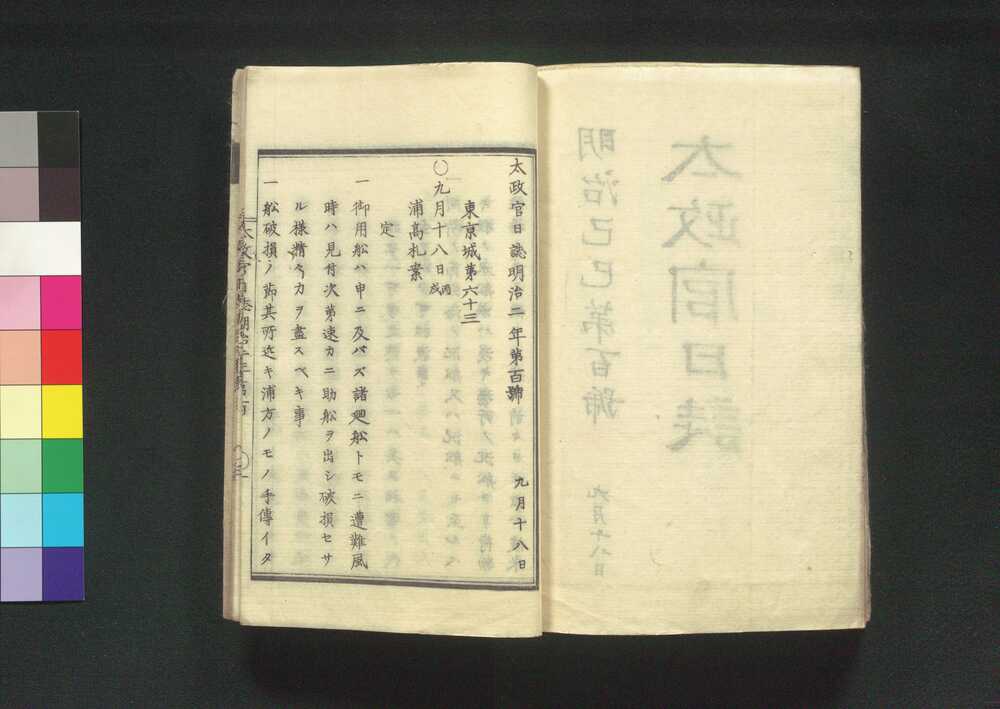 太政官日誌
明治己巳第百號
九月十八日
太政官日誌明治二年第百號 九月十八日
東京城第六十三
〇九月十八日丙戌
浦高札案
定
一 御用舩ハ申ニ及バズ諸廻舩トモニ遭難風
時ハ見付次第速カニ助舩ヲ出シ破損セサ
ル様精々力ヲ盡スベキ事
一 舩破損ノ節其所近キ浦方ノモノ手傳イタ